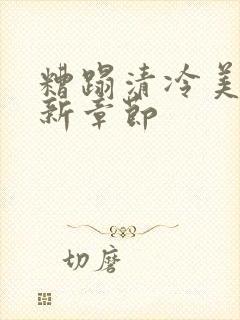 糟蹋清冷美
新章节
切磨